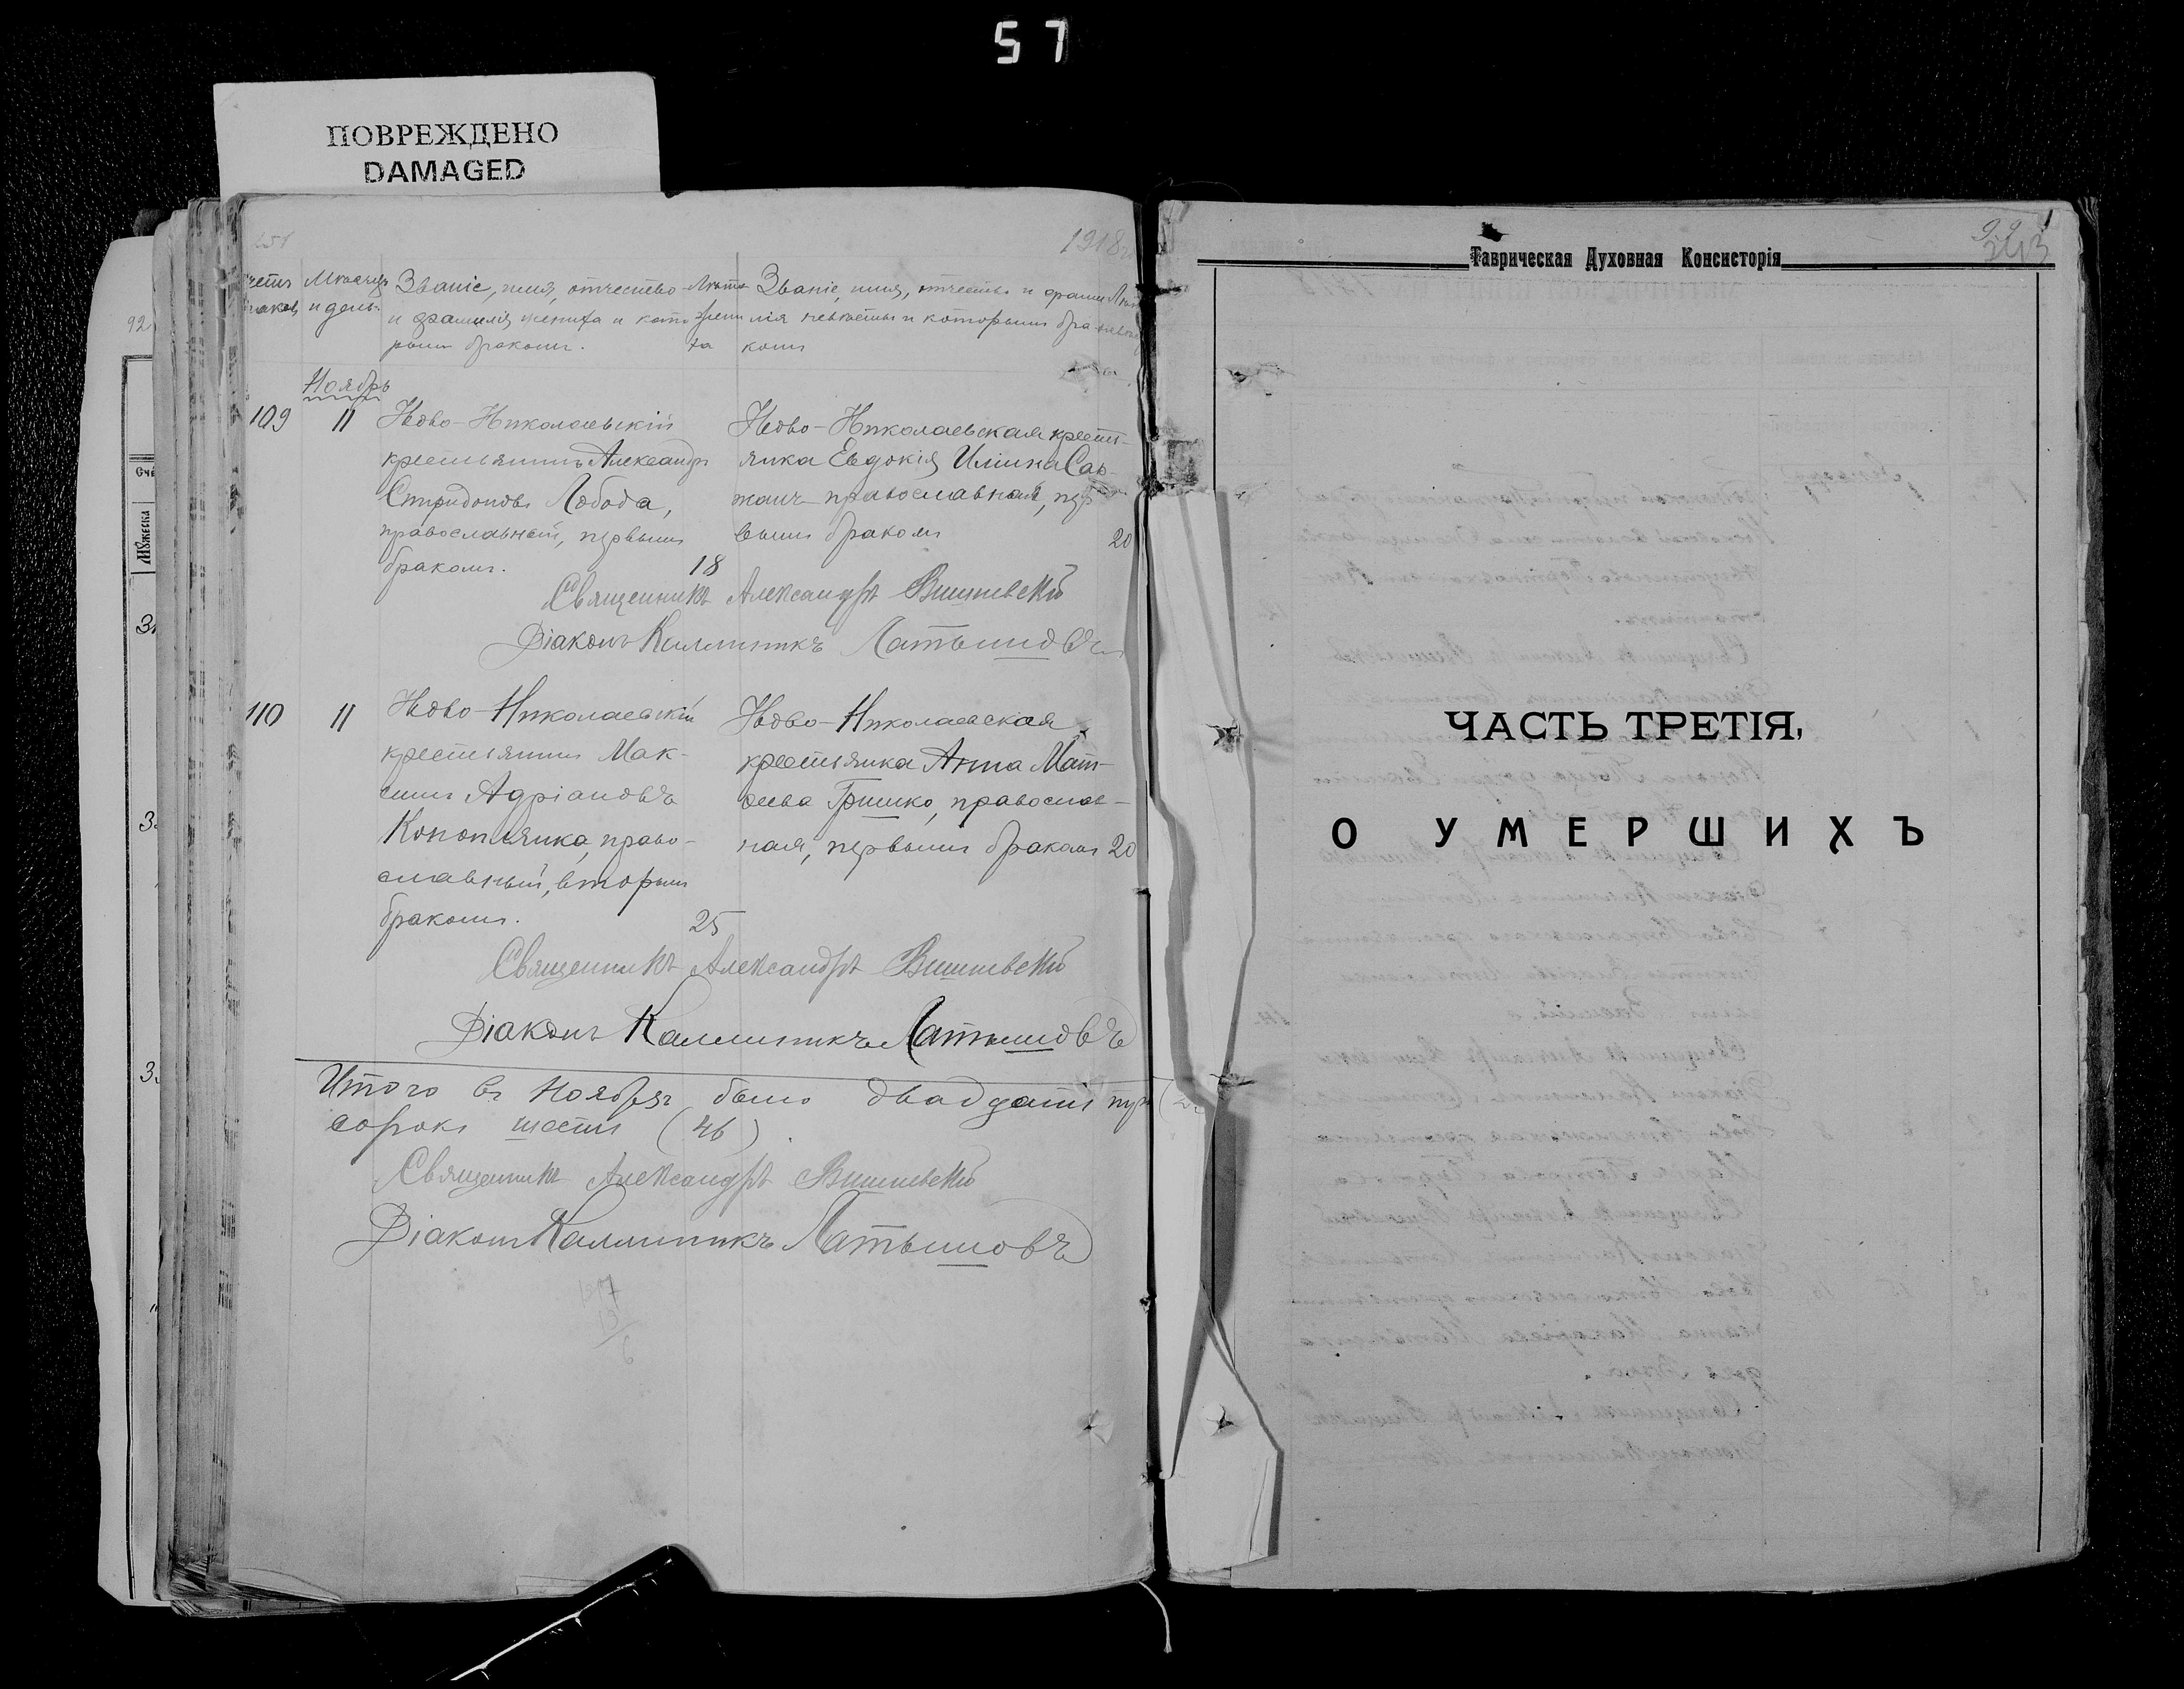 57
ПОВРЕЖДЕНО
DAMAGED
1918
Мѣсяцъ и день.
Званіе, имя, отчество и фамилія жениха и которымъ бракомъ.
Лѣта жениха
Званіе, имя, отчество и фамилія невѣсты и которымъ бракомъ
Ноябрь
109 11
Ново-Николаевскій
крестьянинъ Александръ
Спиридоновъ Лобода,
православный, первымъ
бракомъ. 18
Ново-Николаевская кресть-
янка Евдокія Илiина
православная, пер-
вымъ бракомъ 20
Священникъ Александръ Вишневскій
Діаконъ Каллиникъ Латышовъ
110 11
Ново-Николаевскій
крестьянинъ Мак-
симъ Адріановъ
Коноплянка, право-
славный, вторым
бракомъ. 25
Ново-Николаевская
крестьянка Анна Мат-
ѳеева Гришко, православ-
ная, первымъ бракомъ 20
Священникъ Александръ Вишневскій
Діаконъ Каллиникъ Латышовъ
Итого въ Ноябрѣ было двадцать
сорокъ шесть (46)
Священникъ Александръ Вишневскій
Діаконъ Каллиникъ Латышовъ
92
Счё
Мужеска
243
Таврическая Духовная Консисторія
ЧАСТЬ ТРЕТІЯ,
О УМЕРШИХЪ